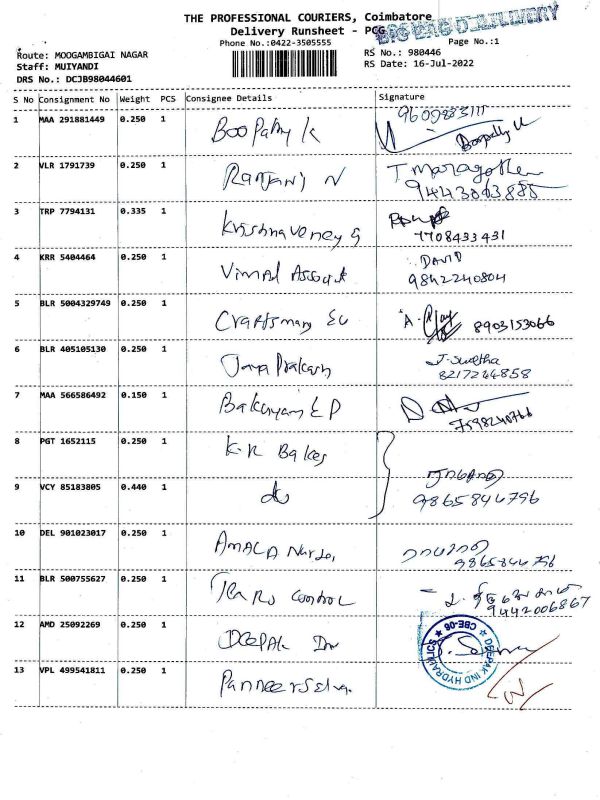 THE PROFESSIONAL COURIERS, Coimbatore
Delivery Runsheet - PCG
BIG BAG DELIVERY
Phone No.:0422-3505555
Page No.:1
Route: MOOGAMBIGAI NAGAR
Staff: MUIYANDI
DRS No.: DCJB98044601
RS No.: 980446
RS Date: 16-Jul-2022
S No Consignment No Weight PCS Consignee Details Signature
1 MAA 291881449 0.250 1 Boopathy K 9609883111
Boopathy K
2 VLR 1791739 0.250 1 Ranjani N
9443063885
3 TRP 7794131 0.335 1 Krishnaveney G
7708433431
4 KRR 5404464 0.250 1 Vimal Associat DAVID
9842240804
5 BLR 5004329749 0.250 1 Craftsman 8903153066
6 BLR 405105130 0.250 1 Jaya Prakash J. Swetha
8217244858
7 MAA 566586492 0.150 1
7598240766
8 PGT 1652115 0.250 1 K.R Bakes
9 VCY 85183805 0.440 1 do
9865844796
10 DEL 901023017 0.250 1 AMALA
9865844796
11 BLR 500755627 0.250 1 Control
9442006867
12 AMD 25092269 0.250 1 DEEPAK
DEEPAK IND HYDRAULICS
CBE-06
13 VPL 499541811 0.250 1 Panneerselva